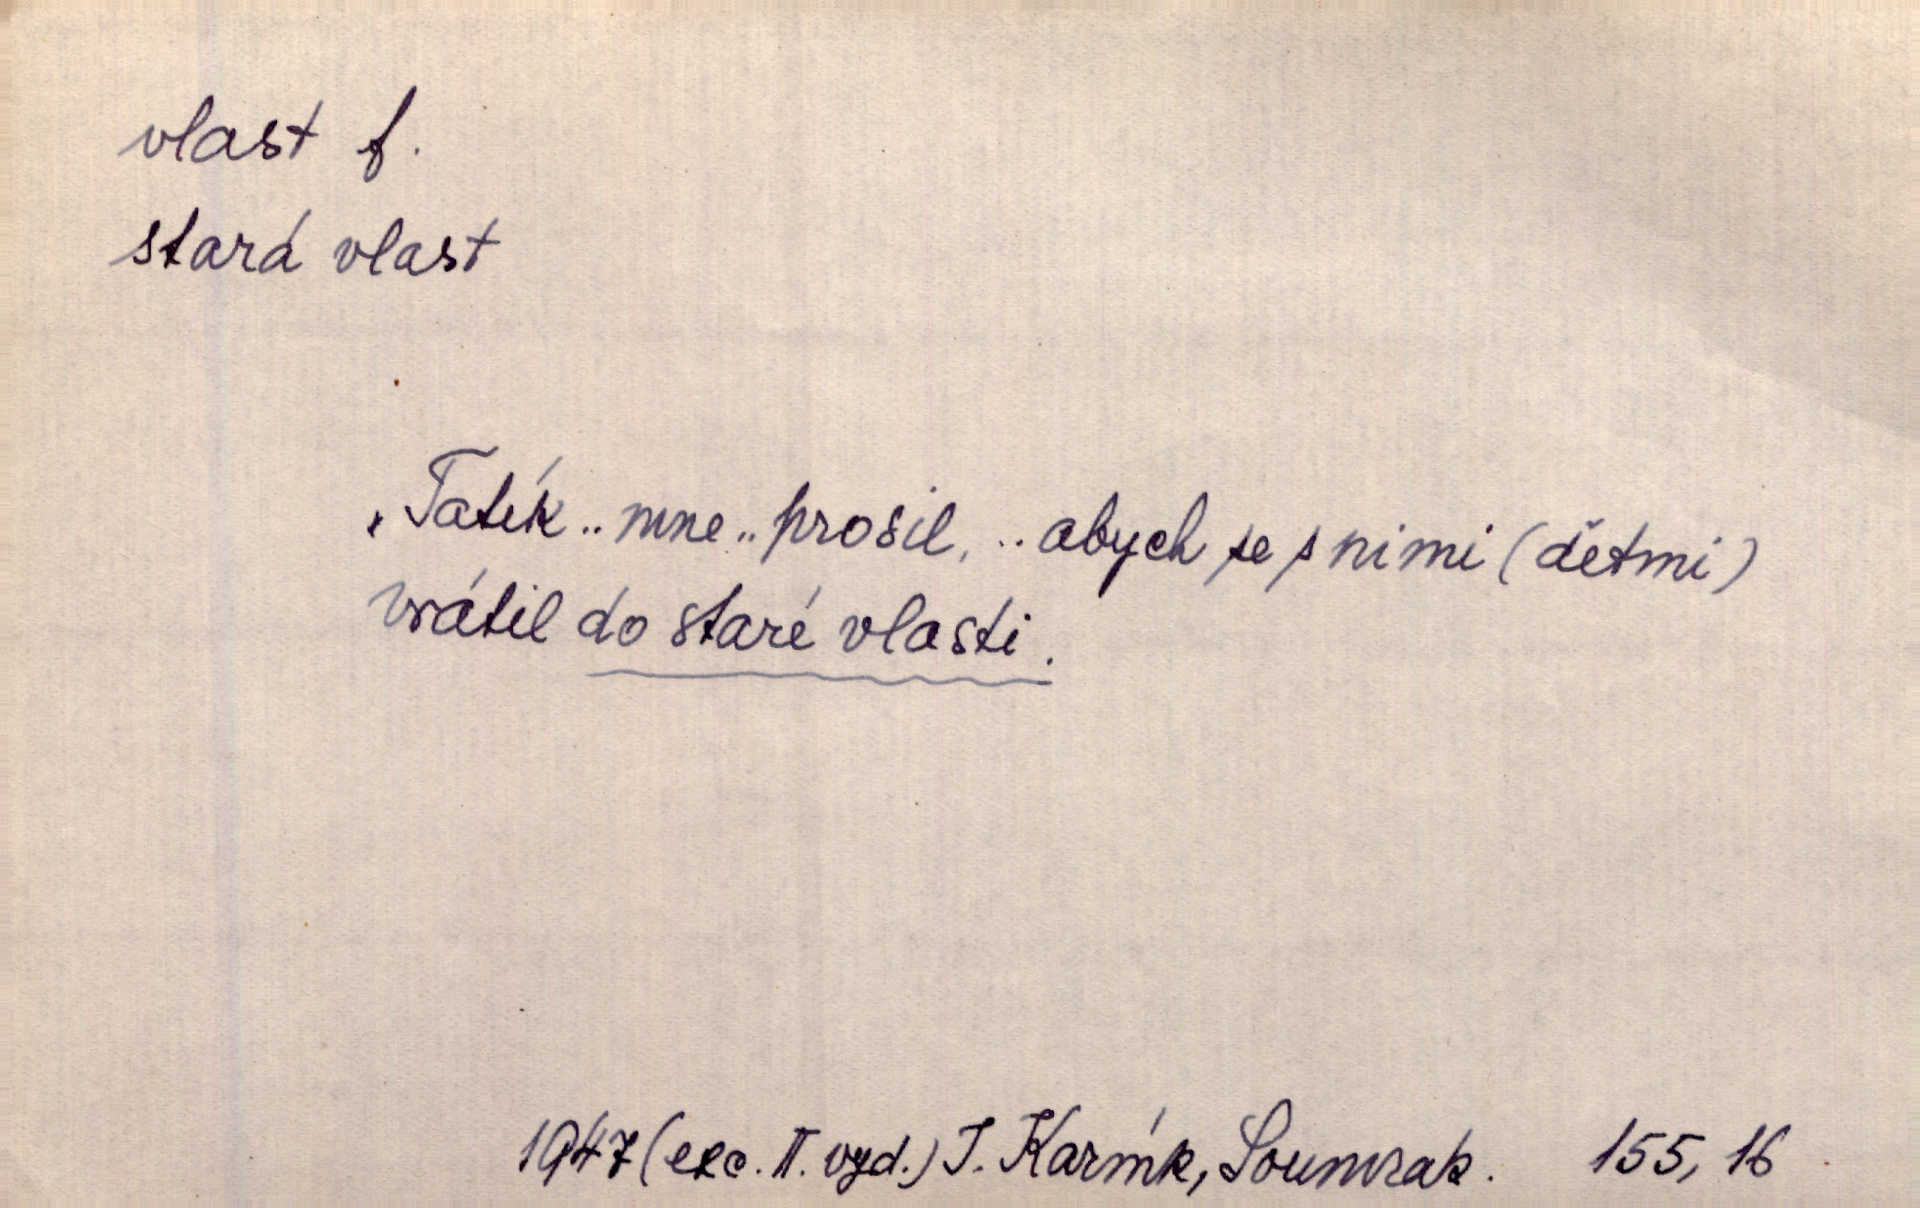 vlast f.
stará vlast
„Tatík .. mne .. prosil, .. abych se s nimi (dětmi)
vrátil do staré vlasti.
1947 (exc. II. vyd.) J. Karník, Soumrak. 155, 16